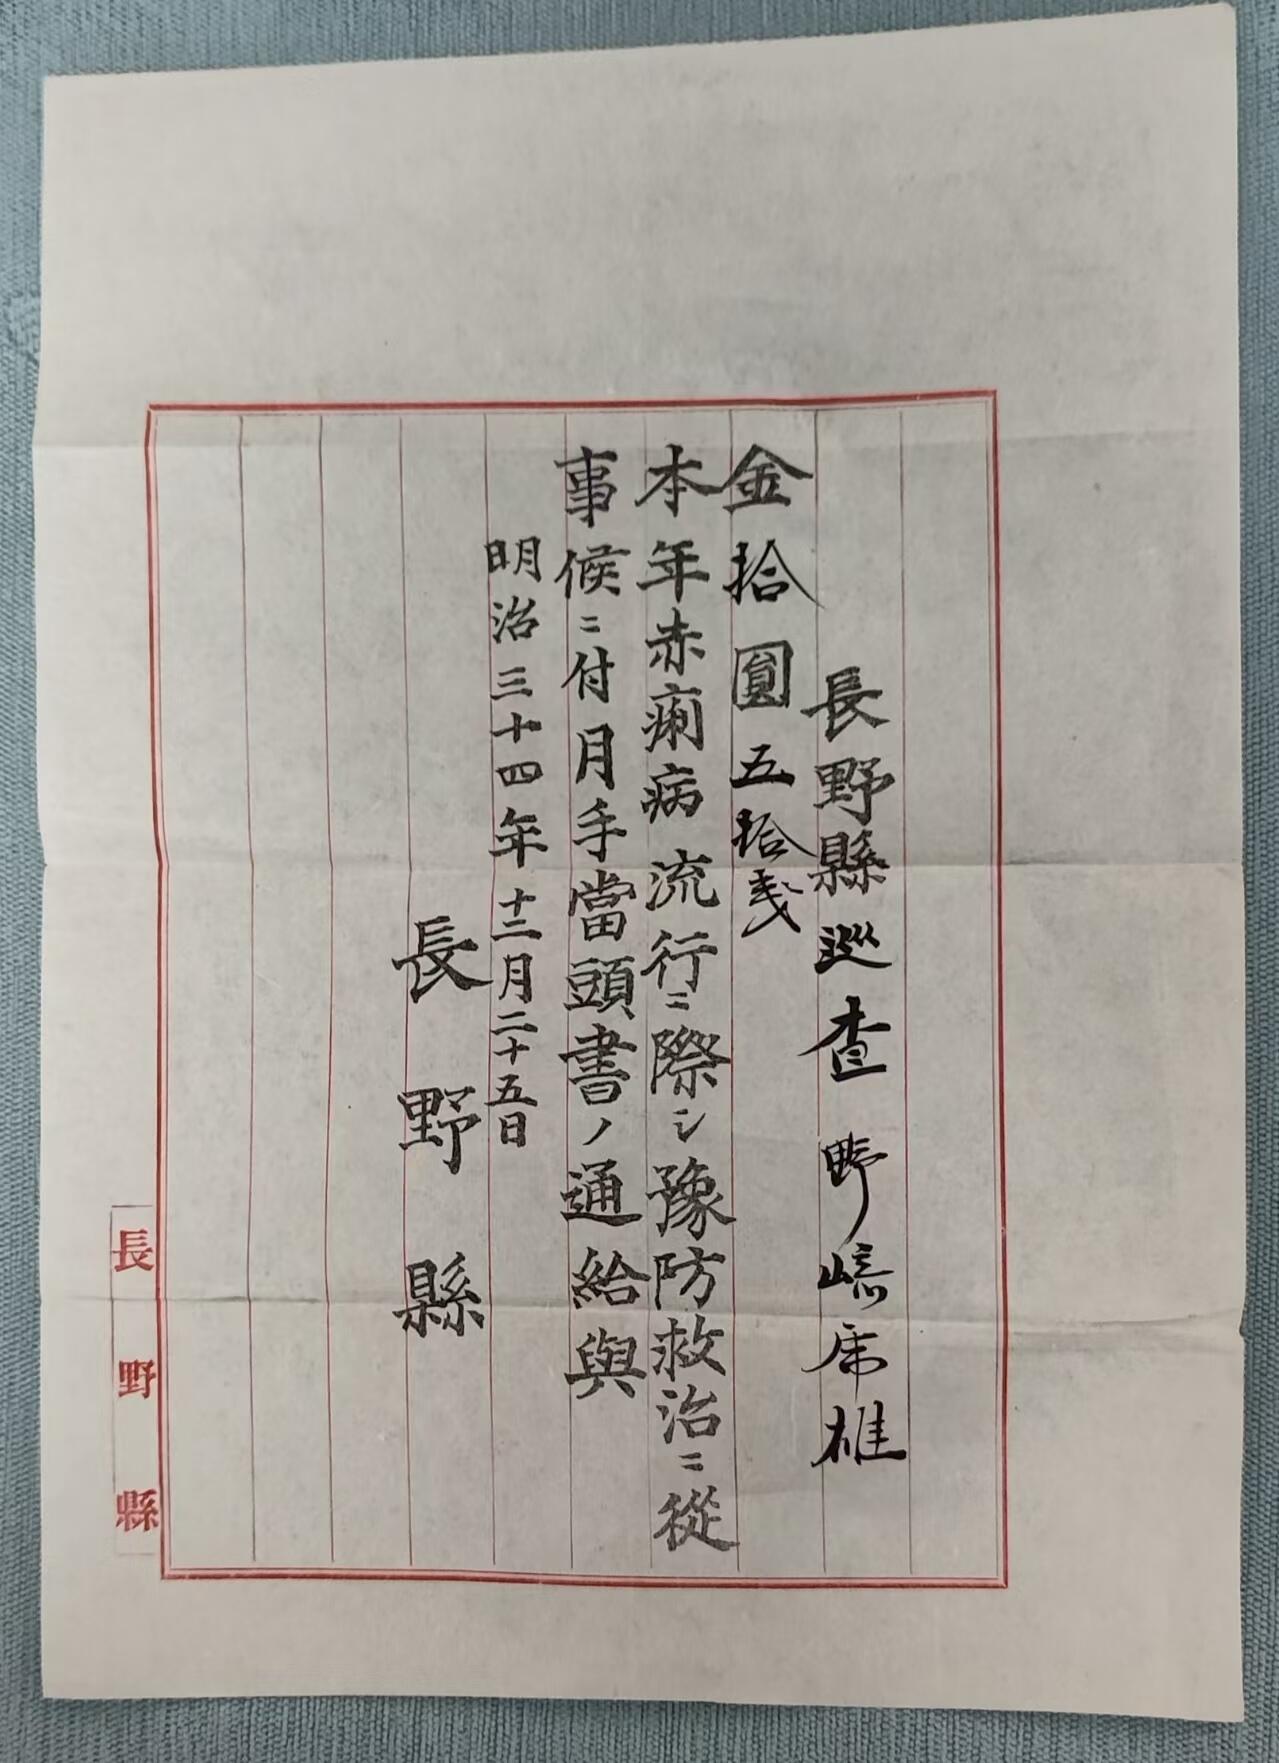 長野縣巡査 野嵜席雄
金拾圓五拾戔
本年赤痢病流行ニ際シ豫防救治ニ從
事候ニ付月手當頭書ノ通給與
明治三十四年十二月二十五日
長野縣
長野縣